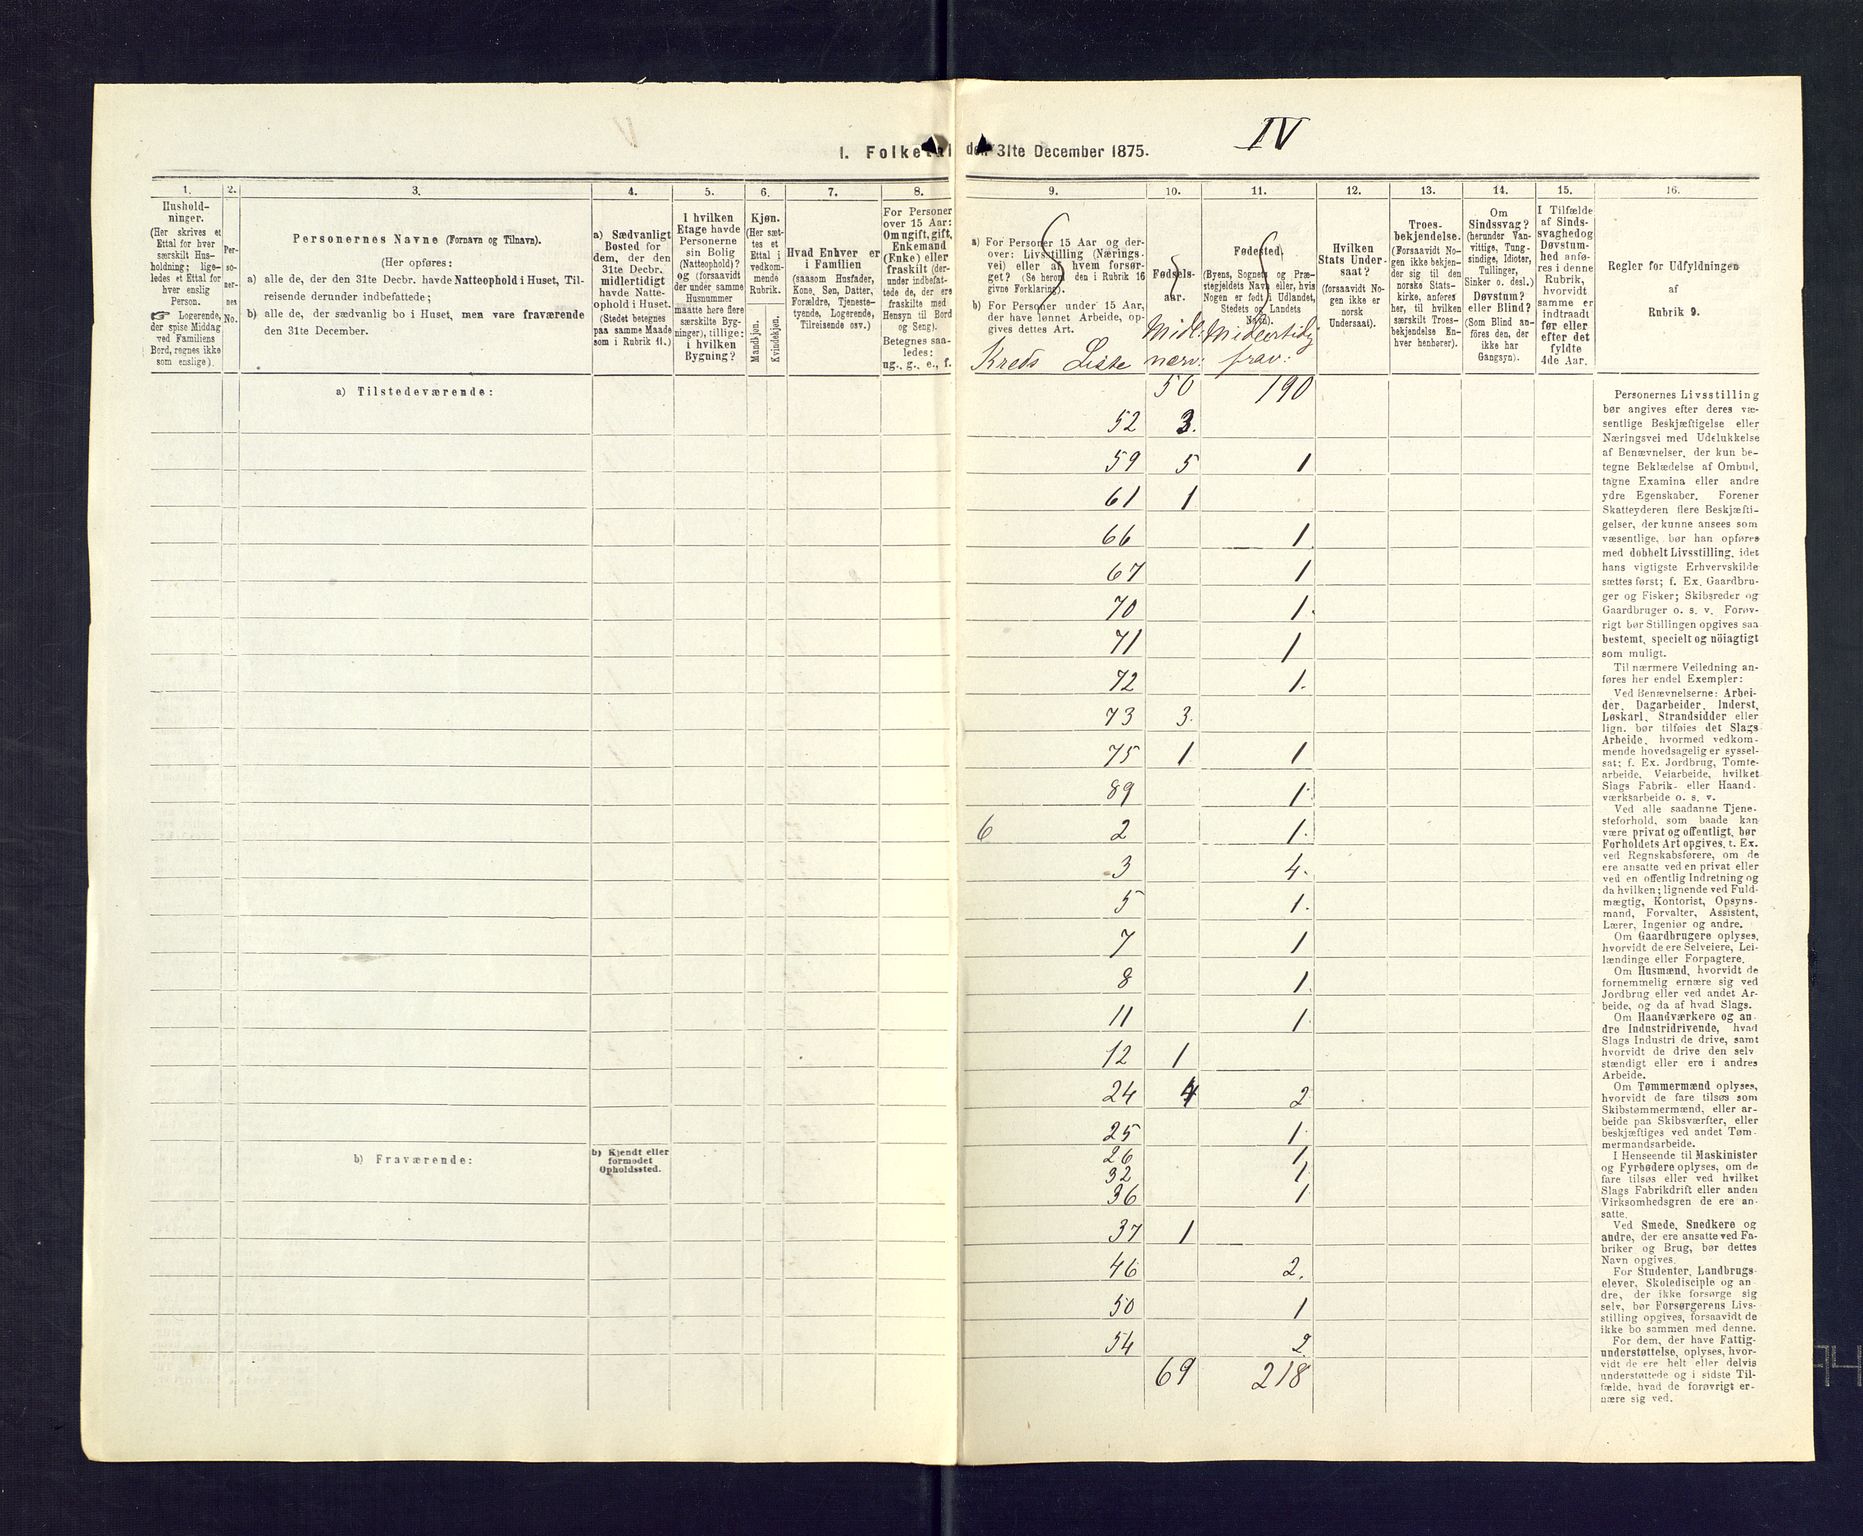 IV
I. Folketal den 31te December 1875.
1.
2.
3.
4.
5.
6.
7.
8.
9.
10.
11.
12.
13.
14.
15.
16.
Hushold-
ninger.
(Her skrives et
Ettal for hver
særskilt Hus-
holdning; lige-
ledes et Ettal for
hver enslig
Person.
☞ Logerende,
der spise Middag
ved Familiens
Bord, regnes ikke
som enslige).
Per-
so-
ner-
nes
No.
Personernes Navne (Fornavn og Tilnavn).
(Her opføres:
a) alle de, der den 31te Decbr. havde Natteophold i Huset, Til-
reisende derunder indbefattede;
b) alle de, der sædvanlig bo i Huset, men vare fraværende
den 31te December.
a) Sædvanligt
Bosted for
dem, der den
31te Decbr.
midlertidigt
havde Natte-
ophold i Huset.
(Stedet betegnes
paa samme Maade
som i Rubrik 11.)
I hvilken
Etage havde
Personerne
sin Bolig
(Natteophold)?
og (forsaavidt
der under samme
Husnummer
maatte høre flere
særskilte Byg-
ninger), tillige:
i hvilken
Bygning?
Kjøn.
(Her sæt-
tes et
Ettal i
vedkom-
mende
Rubrik.
Mandkjøn.
Kvindekjøn.
Hvad Enhver er
i Familien
(saasom Husfader,
Kone, Søn, Datter,
Forældre, Tjeneste-
tyende, Logerende,
Tilreisende osv.)
For Personer
over 15 Aar:
Om ugift, gift,
Enkemand
(Enke) eller
fraskilt (der-
under indbefat-
tede de, der ere
fraskilte med
Hensyn til Bord
og Seng).
Betegnes saa-
ledes:
ug., g., e., f.
a) For Personer 15 Aar og der-
over: Livsstilling (Nærings-
vei) eller af hvem forsør-
get? (Se herom den i Rubrik 16
givne Forklaring).
b) For Personer under 15 Aar,
der have lønnet Arbeide, op-
gives dettes Art.
Kreds Liste
Fødsels-
aar.
Midl:
nærv:
Fødested.
(Byens, Sognets og Præ-
stegjeldets Navn, eller, hvis
Nogen er født i Udlandet,
Stedets og Landets
Navn).
Midlertidig
frav:
Hvilken
Stats Under-
saat?
(forsaavidt No-
gen ikke er
norsk
Undersaat).
Troes-
bekjendelse.
(Forsaavidt No-
gen ikke bekjen-
der sig til den
norske Stats-
kirke, anføres
her, til hvilken
særskilt Troes-
bekjendelse En-
hver henhører).
Om
Sindssvag?
(herunder Van-
vittige, Tung-
sindige, Idioter,
Tullinger,
Sinker o. desl.)
Døvstum?
eller Blind?
(Som Blind an-
føres den, der
ikke har
Gangsyn).
I Tilfælde
af Sinds-
svaghed og
Døvstum-
hed anfø-
res i denne
Rubrik,
hvorvidt
samme er
indtraadt
før eller
efter det
fyldte
4de Aar.
Regler for Udfyldningen
af
Rubrik 9.
a) Tilstedeværende:
50 190
52 3.
59 5 1
61 1
66 1
67 1
70 1.
71 1
72 1.
73 3.
75 1 1
89 1.
6 2 1.
3 4.
5 1.
7 1
8 1.
11 1.
12 1
24 4 2
25 1.
26 1
32 1.
36 1
37 1
46 2.
50 1
54 2
69 218
b) Fraværende:
b) Kjendt eller
formodet
Opholdssted.
Personernes Livsstilling
bør angives efter deres væ-
sentlige Beskjæftigelse eller
Næringsvei med Udelukkelse
af Benævnelser, der kun be-
tegne Beklædelse af Ombud,
tagne Examina eller andre
ydre Egenskaber. Forener
Skatteyderen flere Beskjæfti-
gelser, der kunne ansees som
væsentlige, bør han opføres
med dobbelt Livsstilling, idet
hans vigtigste Erhvervskilde
sættes først; f. Ex. Gaardbru-
ger og Fisker; Skibsreder og
Gaardbruger o. s. v. Forøv-
rigt bør Stillingen opgives saa
bestemt, specielt og nöiagtigt
som muligt.
Til nærmere Veiledning an-
føres her endel Exempler:
Ved Benævnelserne: Arbei-
der, Dagarbeider, Inderst,
Løskarl, Strandsidder eller
lign. bør tilføies det Slags
Arbeide, hvormed vedkom-
mende hovedsagelig er syssel-
sat; f. Ex. Jordbrug, Tomte-
arbeide, Veiarbeide, hvilket
Slags Fabrik- eller Haand-
værksarbeide o. s. v.
Ved alle saadanne Tjene-
steforhold, som baade kan
være privat og offentligt, bør
Forholdets Art opgives, t. Ex.
ved Regnskabsførere, om de
ere ansatte ved en privat eller
ved en offentlig Indretning og
da hvilken; lignende ved Fuld-
mægtig, Kontorist, Opsyns-
mand, Forvalter, Assistent,
Lærer, Ingeniør og andre.
Om Gaardbrugere oplyses,
hvorvidt de ere Selveiere, Lei-
lændinge eller Forpagtere.
Om Husmænd, hvorvidt de
fornemmelig ernære sig ved
Jordbrug eller ved andet Ar-
beide, og da af hvad Slags.
Om Haandværkere og an-
dre Industridrivende, hvad
Slags Industri de drive, samt
hvorvidt de drive den selv
stændigt eller ere i andres
Arbeide.
Om Tømmermænd oplyses,
hvorvidt de fare tilsøs som
Skibstømmermænd, eller ar-
beide paa Skibsværfter, eller
beskjæftiges ved andet Tøm-
mermandsarbeide.
I Henseende til Maskinister
og Fyrbødere oplyses, om de
fare tilsøs eller ved hvilket
Slags Fabrikdrift eller anden
Virksomhedsgren de ere an-
satte.
Ved Smede, Snedkere og
andre, der ere ansatte ved Fa-
briker og Brug, bør dettes
Navn opgives.
For Studenter, Landbrugs-
elever, Skoledisciple og an-
dre, der ikke forsørge sig
selv, bør Forsørgerens Livs-
stilling opgives, forsaavidt de
ikke bo sammen med denne.
For dem, der have Fattig-
understøttelse, oplyses, hvor-
vidt de ere helt eller delvis
understøttede og i sidste Til-
fælde, hvad de forøvrigt er-
nære sig ved.